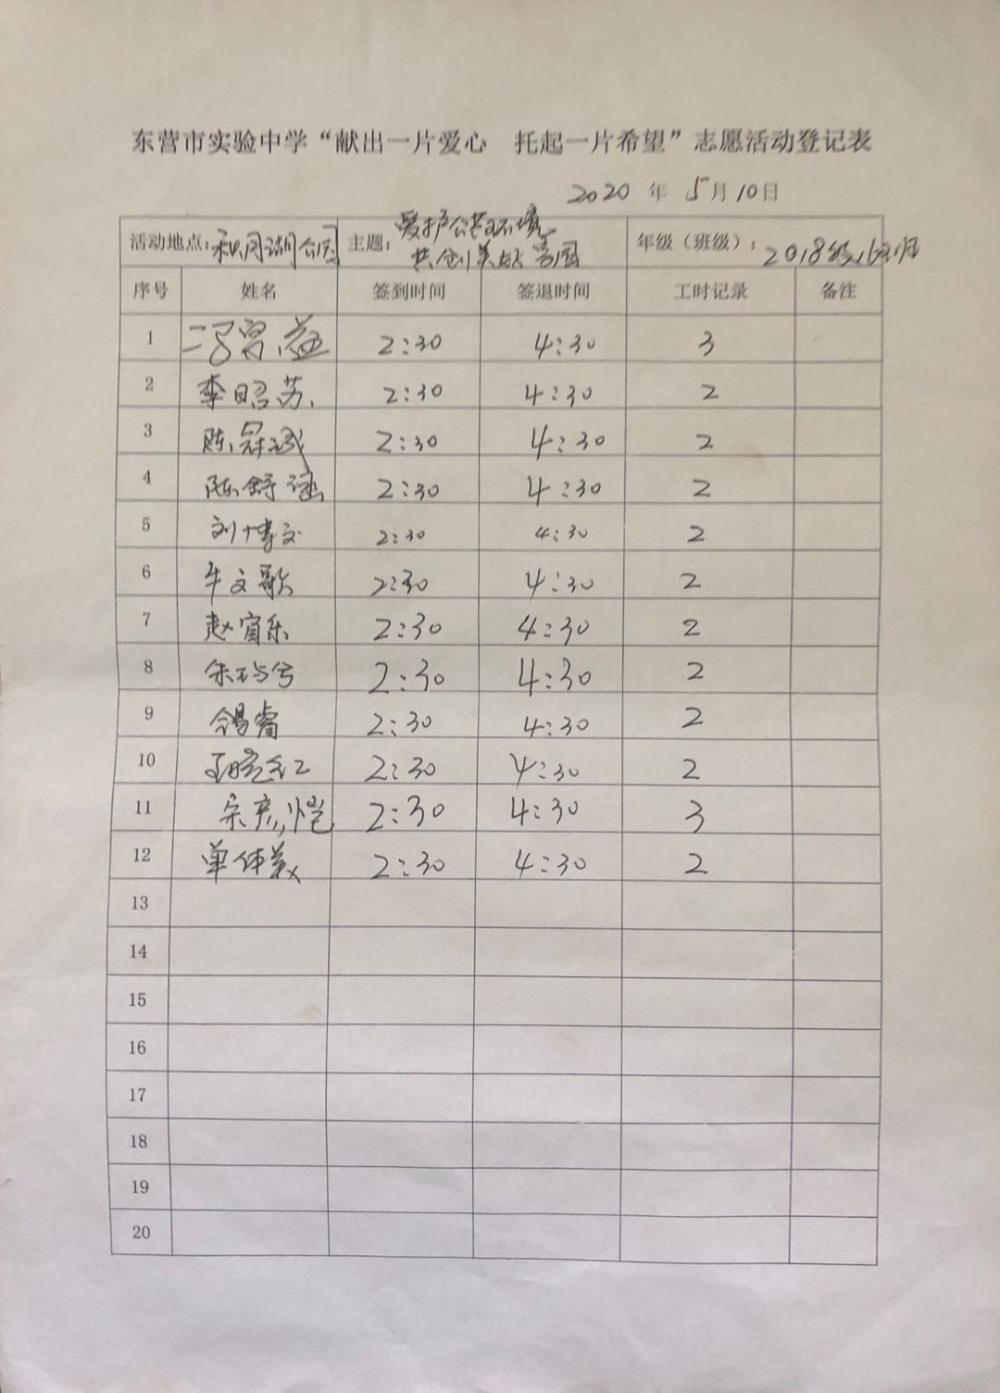 东营市实验中学“献出一片爱心 托起一片希望”志愿活动登记表
2020 年 5月10日
活动地点:秋月湖公园 主题: 爱护公共环境 共创美好家园 年级（班级）: 2018级
序号 姓名 签到时间 签退时间 工时记录 备注
1 2:30 4:30 3
2 李昭苏 2:30 4:30 2
3 陈冠斌 2:30 4:30 2
4 陈舒涵 2:30 4:30 2
5 刘博文 2:30 4:30 2
6 牛文歌 2:30 4:30 2
7 赵宜乐 2:30 4:30 2
8 2:30 4:30 2
9 2:30 4:30 2
10 2:30 4:30 2
11 宋彦恺 2:30 4:30 3
12 单体美 2:30 4:30 2
13
14
15
16
17
18
19
20